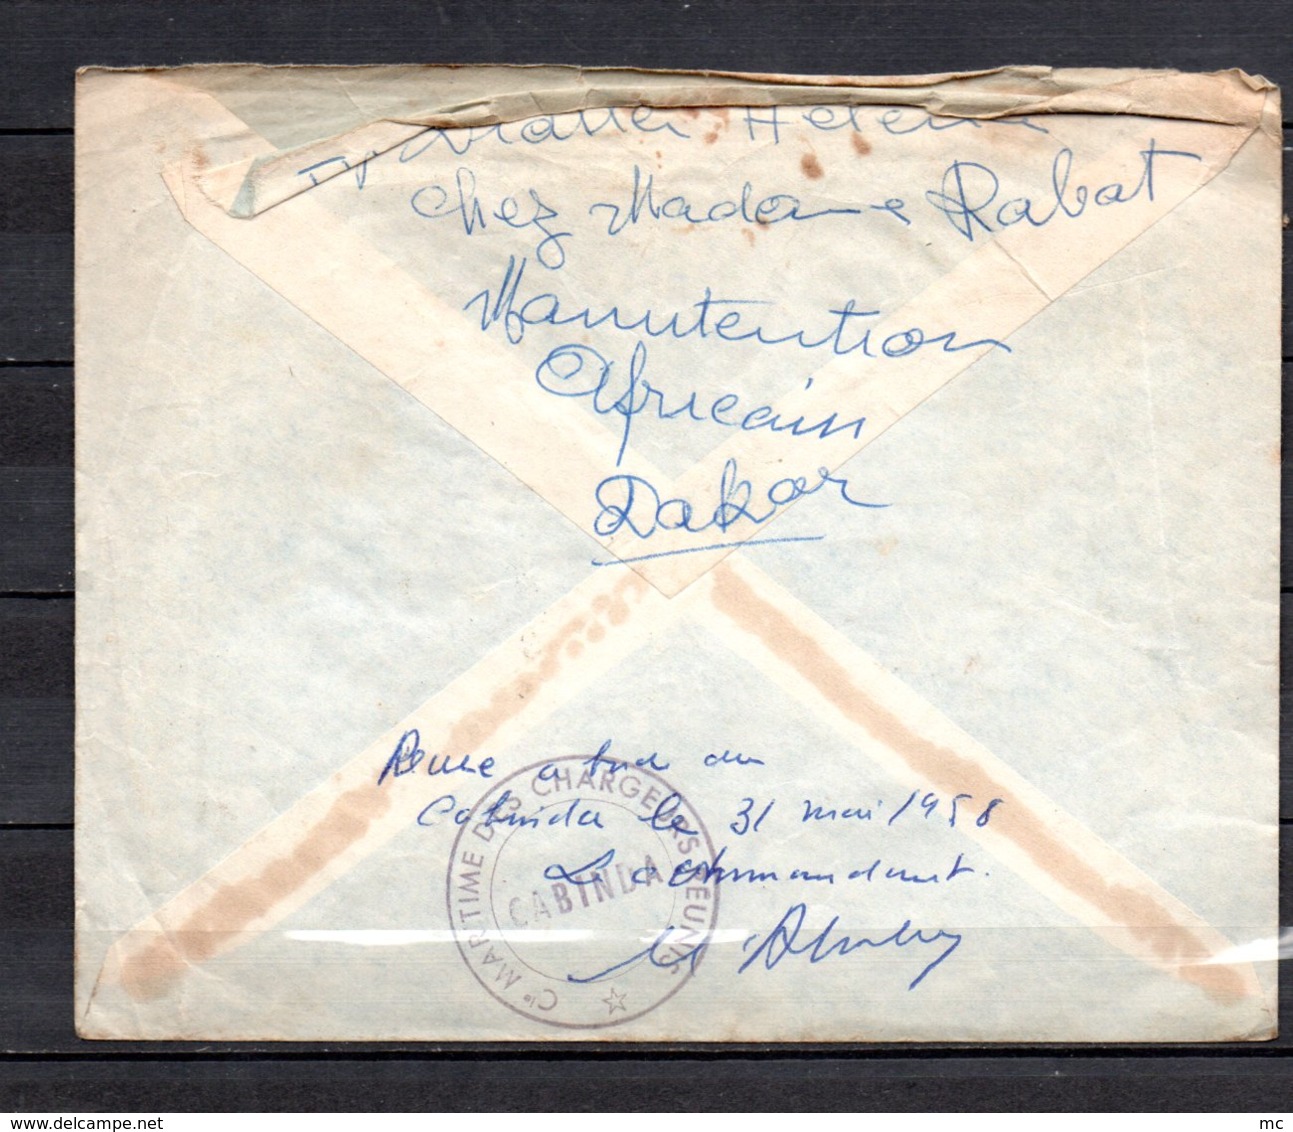 Hélène
chez Madame Rabat
Manutention
Africain
Dakar
Remise a bord du
Cabinda le 31 mai 1958
Le Commandant.
Cie MARITIME DES CHARGEURS REUNIS
CABINDA
www.delcampe.net
mc